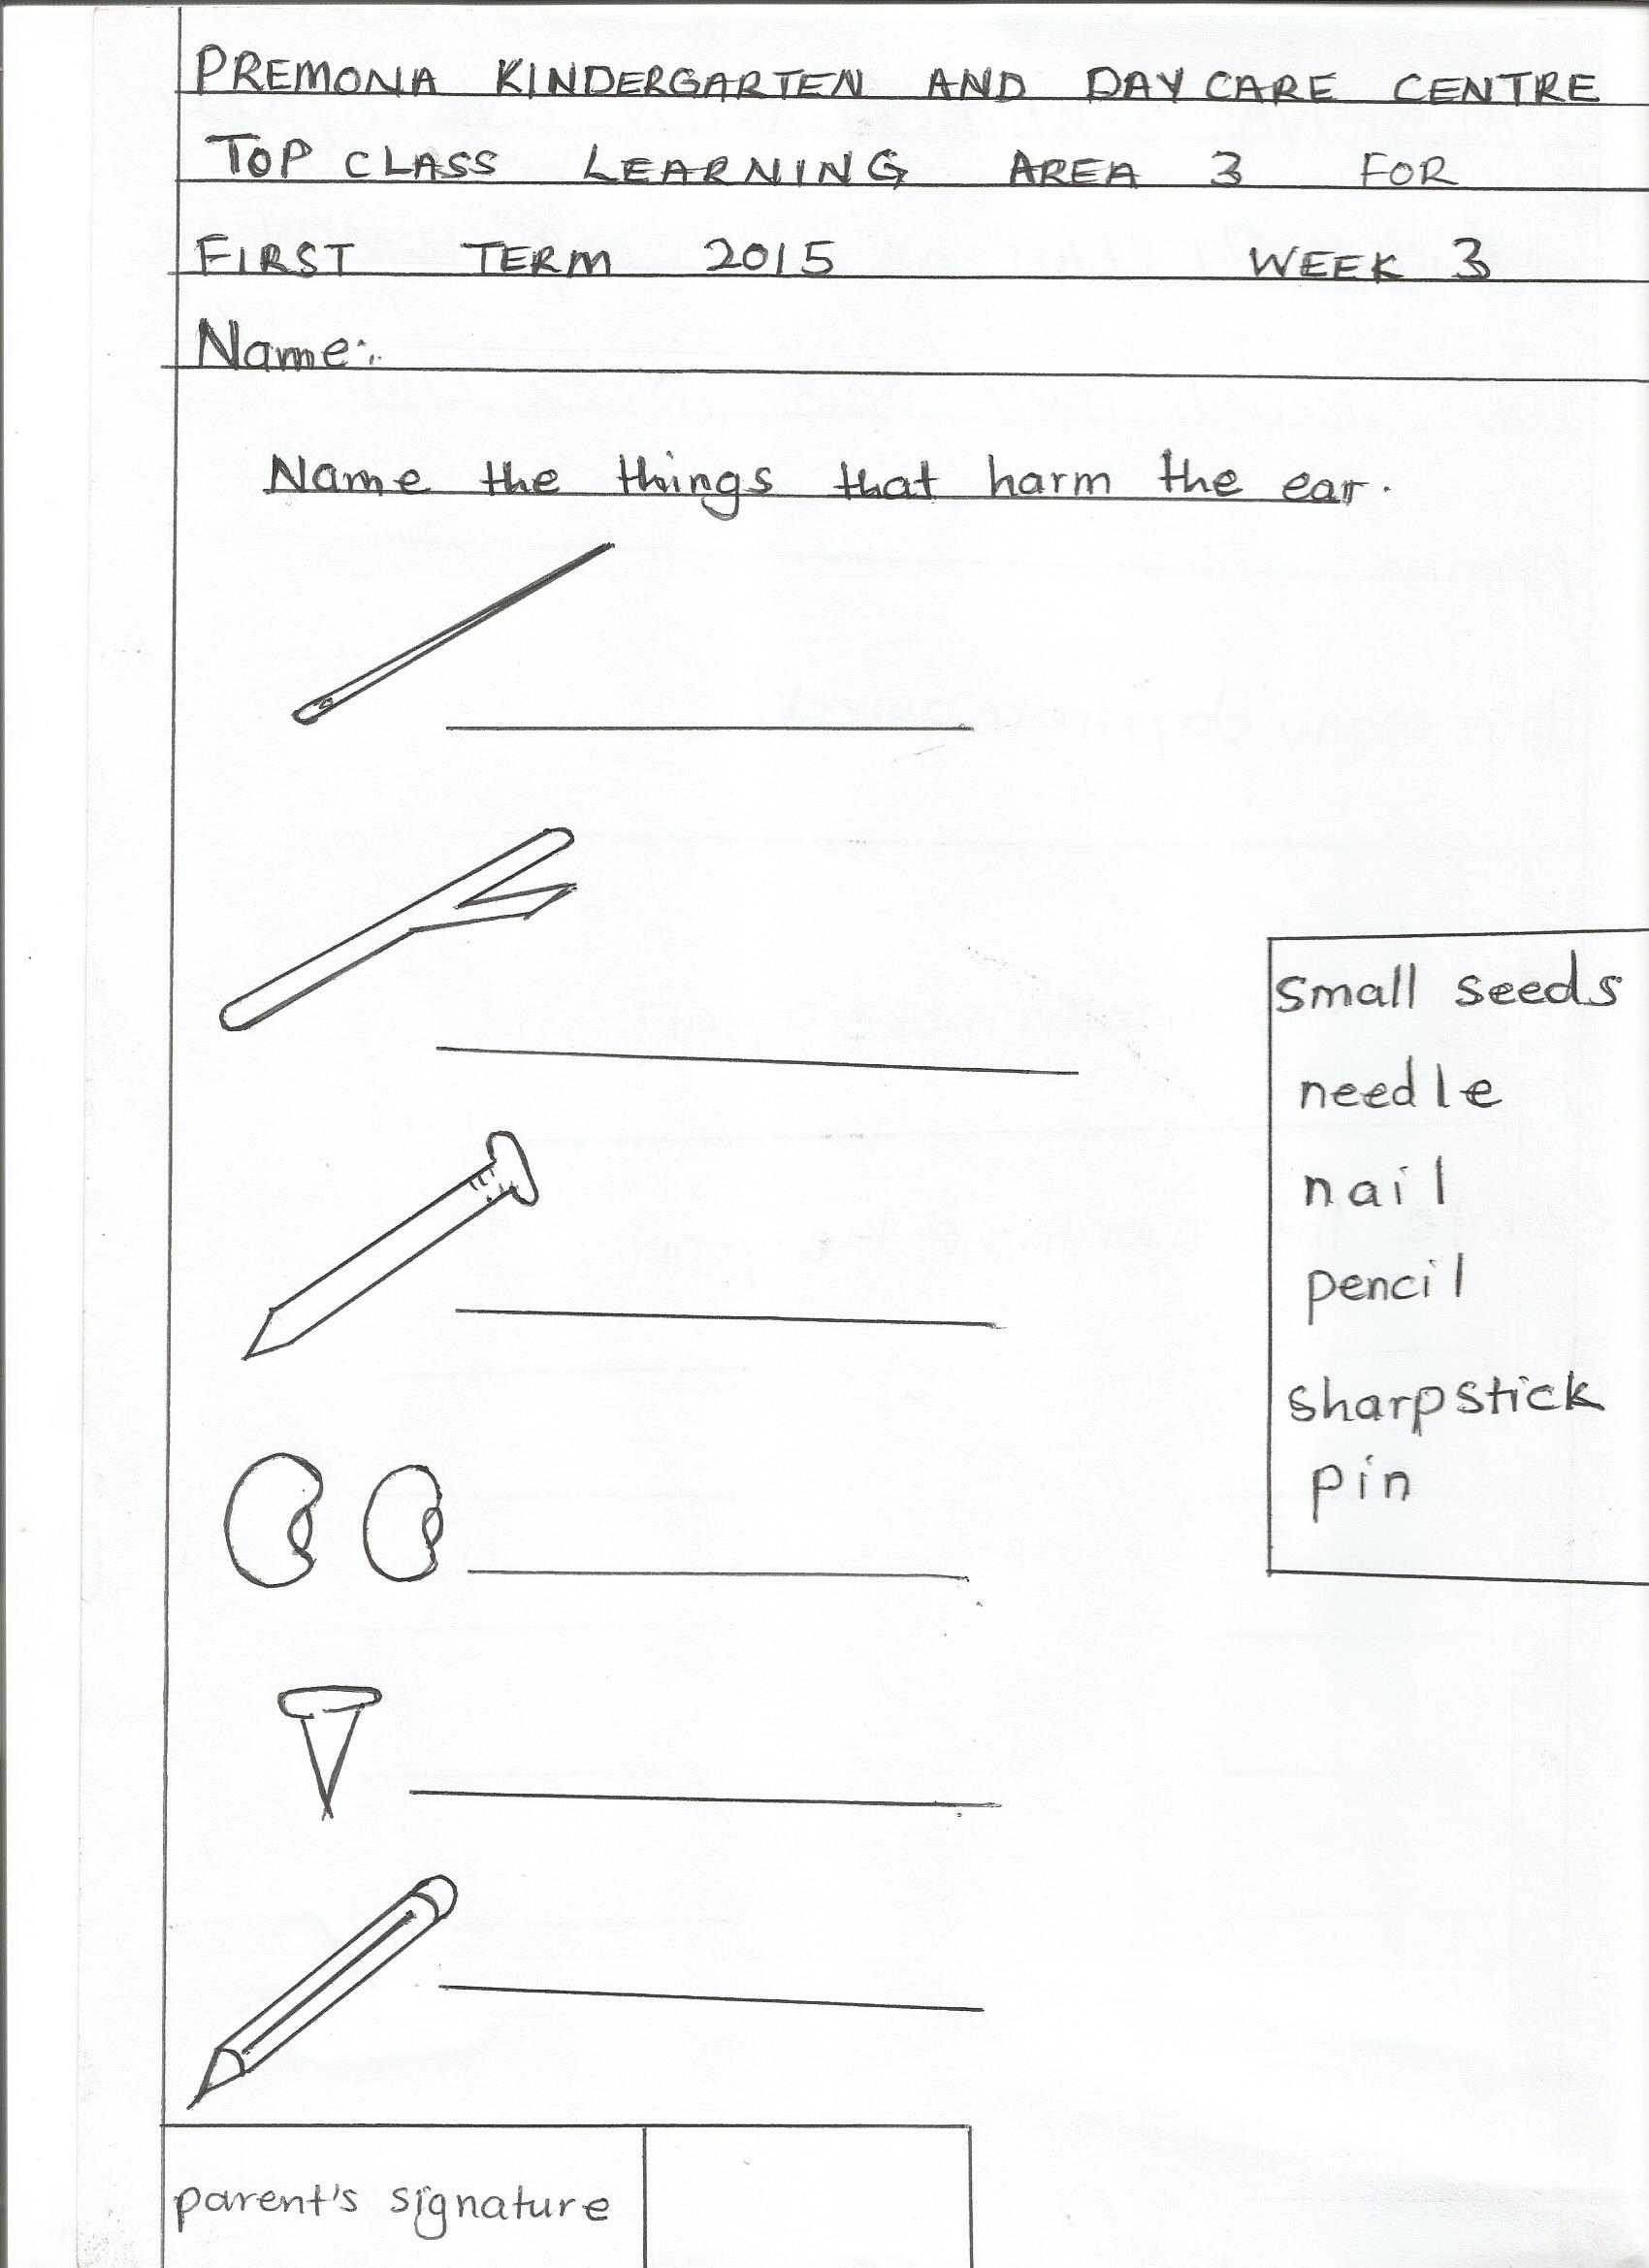 PREMONA KINDERGARTEN AND DAY CARE CENTRE
TOP CLASS LEARNING AREA 3 FOR
FIRST TERM 2015 WEEK 3
Name:
Name the things that harm the ear.
small seeds
needle
nail
pencil
sharpstick
pin
parent's signature